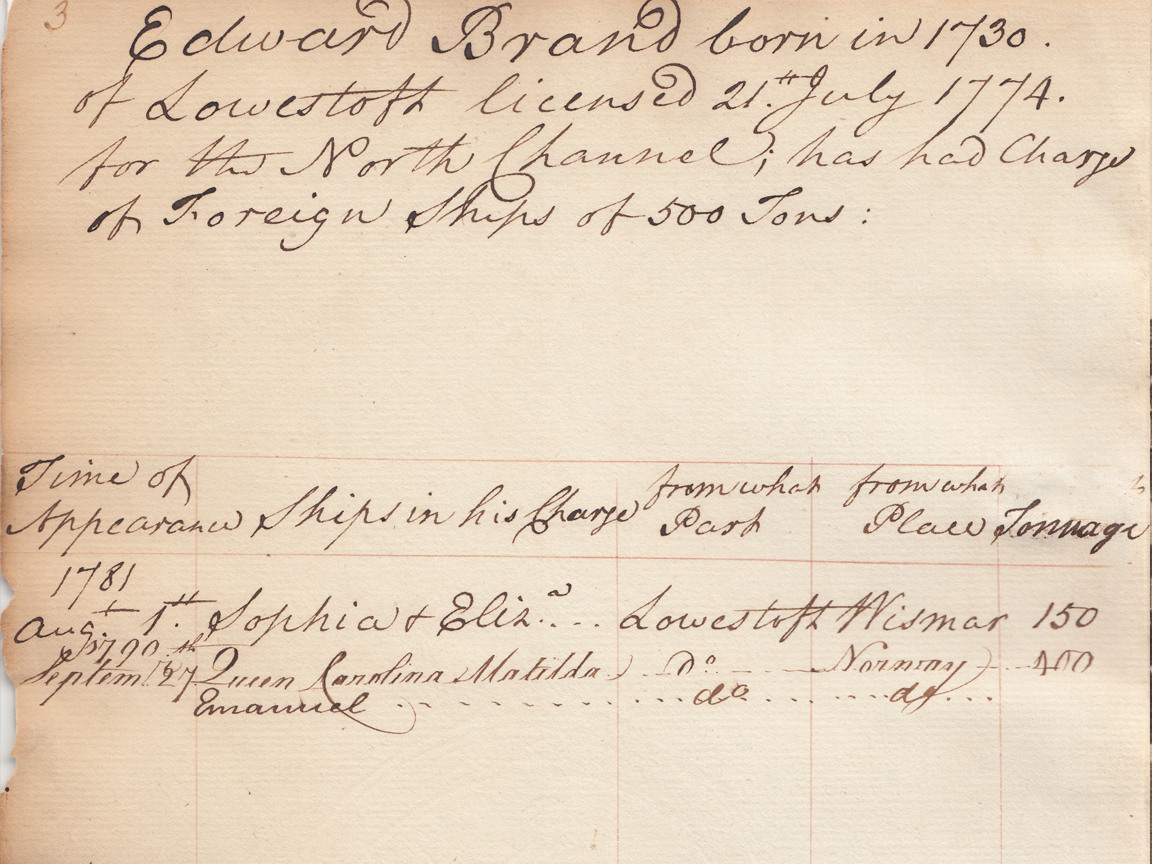 3
Edward Brand born in 1730.
of Lowestoft licensed 21.st July 1774.
for the North Channel; has had Charge
of Foreign Ships of 500 Tons:
Time of Appearance Ships in his Charge from what Part from what Place Tonnage
1781
Augt 1.st Sophia & Eliz.a .. Lowestoft Wismar 150
1790
Septemr 27th Queen Carolina Matilda Do Norway 400
Emanuel do do